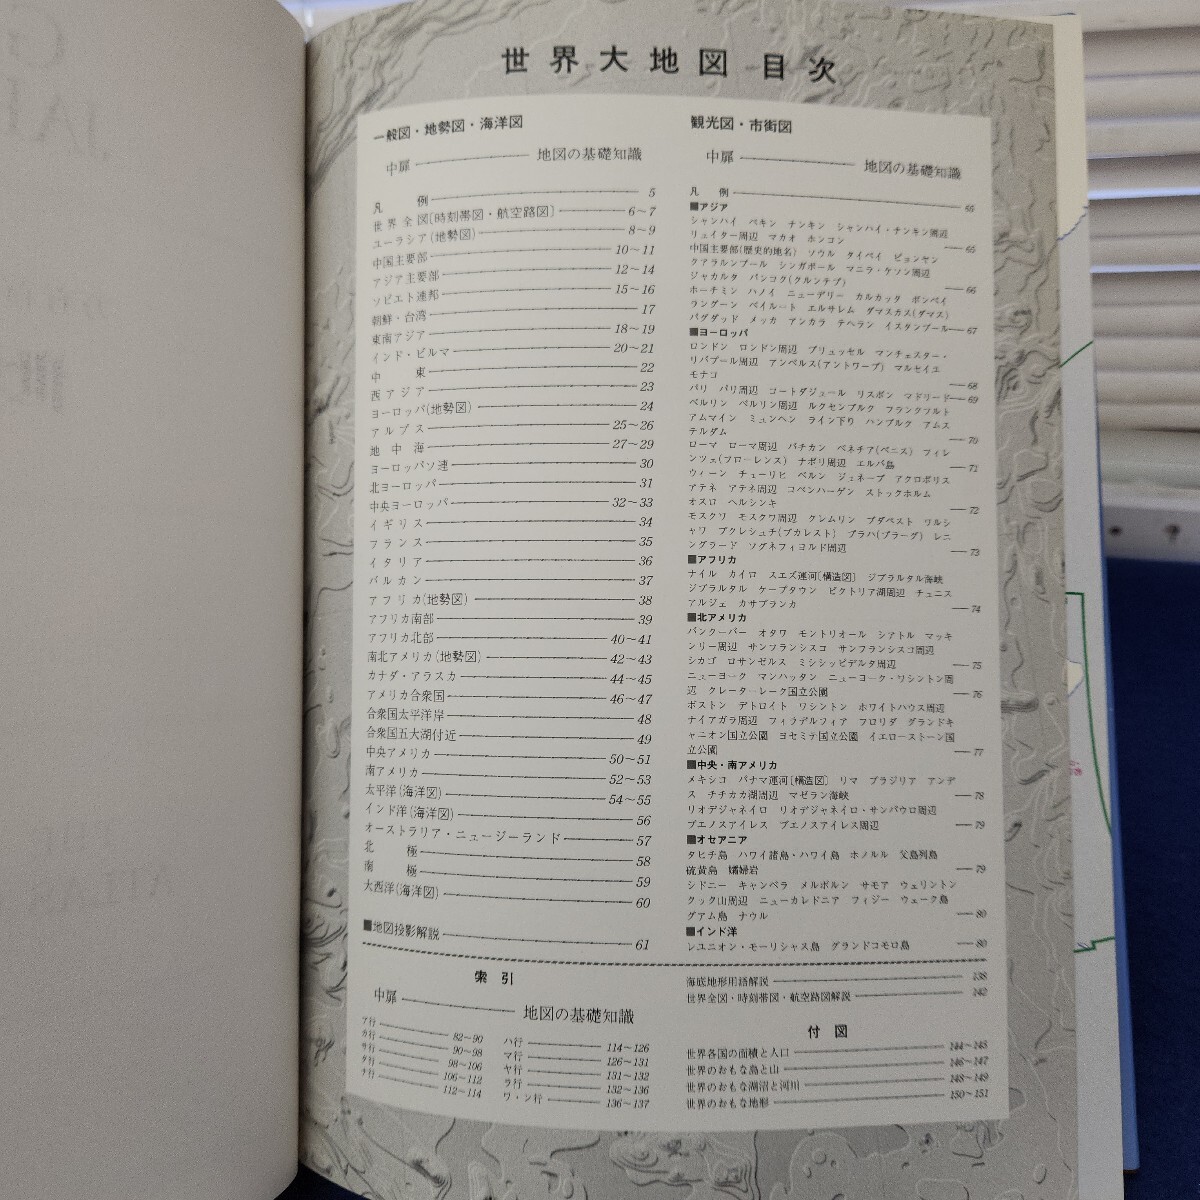 世界大地図 目次
一般図・地勢図・海洋図
中扉 地図の基礎知識
凡例 5
世界全図〔時刻帯図・航空路図〕 6~7
ユーラシア(地勢図) 8~9
中国主要部 10~11
アジア主要部 12~14
ソビエト連邦 15~16
朝鮮・台湾 17
東南アジア 18~19
インド・ビルマ 20~21
中東 22
西アジア 23
ヨーロッパ(地勢図) 24
アルプス 25~26
地中海 27~29
ヨーロッパソ連 30
北ヨーロッパ 31
中央ヨーロッパ 32~33
イギリス 34
フランス 35
イタリア 36
バルカン 37
アフリカ(地勢図) 38
アフリカ南部 39
アフリカ北部 40~41
南北アメリカ(地勢図) 42~43
カナダ・アラスカ 44~45
アメリカ合衆国 46~47
合衆国太平洋岸 48
合衆国五大湖付近 49
中央アメリカ 50~51
南アメリカ 52~53
太平洋(海洋図) 54~55
インド洋(海洋図) 56
オーストラリア・ニュージーランド 57
北極 58
南極 59
大西洋(海洋図) 60
■地図投影解説 61
観光図・市街図
中扉 地図の基礎知識
凡例
■アジア
シャンハイ ペキン ナンキン シャンハイ・ナンキン周辺
リュイター周辺 マカオ ホンコン 65
中国主要部(歴史的地名) ソウル タイペイ ピョンヤン
クアラルンプール シンガポール マニラ・ケソン周辺
ジャカルタ バンコク(クルンテプ) 66
ホーチミン ハノイ ニューデリー カルカッタ ボンベイ
ラングーン ベイルート エルサレム ダマスカス(ダマス)
バグダッド メッカ アンカラ テヘラン イスタンブール 67
■ヨーロッパ
ロンドン ロンドン周辺 ブリュッセル マンチェスター・
リバプール周辺 アンベルス(アントワープ) マルセイユ
モナコ 68
パリ パリ周辺 コートダジュール リスボン マドリード 69
ベルリン ベルリン周辺 ルクセンブルク フランクフルト
アムマイン ミュンヘン ライン下り ハンブルク アムス
テルダム 70
ローマ ローマ周辺 バチカン ベネチア(ベニス) フィレ
ンツェ(フローレンス) ナポリ周辺 エルバ島 71
ウィーン チューリヒ ベルン ジュネーブ アクロポリス
アテネ アテネ周辺 コペンハーゲン ストックホルム
オスロ ヘルシンキ 72
モスクワ モスクワ周辺 クレムリン ブダペスト ワルシ
ャワ ブクレシュチ(ブカレスト) プラハ(プラーグ) レニ
ングラード ソグネフィヨルド周辺 73
■アフリカ
ナイル カイロ スエズ運河〔構造図〕 ジブラルタル海峡
ジブラルタル ケープタウン ビクトリア湖周辺 チュニス
アルジェ カサブランカ 74
■北アメリカ
バンクーバー オタワ モントリオール シアトル マッキ
ンリー周辺 サンフランシスコ サンフランシスコ周辺
シカゴ ロサンゼルス ミシシッピデルタ周辺 75
ニューヨーク マンハッタン ニューヨーク・ワシントン周
辺 クレーターレーク国立公園 76
ボストン デトロイト ワシントン ホワイトハウス周辺
ナイアガラ周辺 フィラデルフィア フロリダ グランドキ
ャニオン国立公園 ヨセミテ国立公園 イエローストーン国
立公園 77
■中央・南アメリカ
メキシコ パナマ運河〔構造図〕 リマ ブラジリア アンデ
ス チチカカ湖周辺 マゼラン海峡 78
リオデジャネイロ リオデジャネイロ・サンパウロ周辺
ブエノスアイレス ブエノスアイレス周辺 79
■オセアニア
タヒチ島 ハワイ諸島・ハワイ島 ホノルル 父島列島
硫黄島 孀婦岩 79
シドニー キャンベラ メルボルン サモア ウェリントン
クック山周辺 ニューカレドニア フィジー ウェーク島
グアム島 ナウル 80
■インド洋
レユニオン・モーリシャス島 グランドコモロ島 80
索引
中扉 地図の基礎知識
ア行 82~90
カ行 90~98
サ行 98~106
タ行 106~112
ナ行 112~114
ハ行 114~126
マ行 126~131
ヤ行 131~132
ラ行 132~136
ワ・ン行 136~137
海底地形用語解説 138
世界全図・時刻帯図・航空路図解説 142
付図
世界各国の面積と人口 144~145
世界のおもな島と山 146~147
世界のおもな湖沼と河川 148~149
世界のおもな地形 150~151